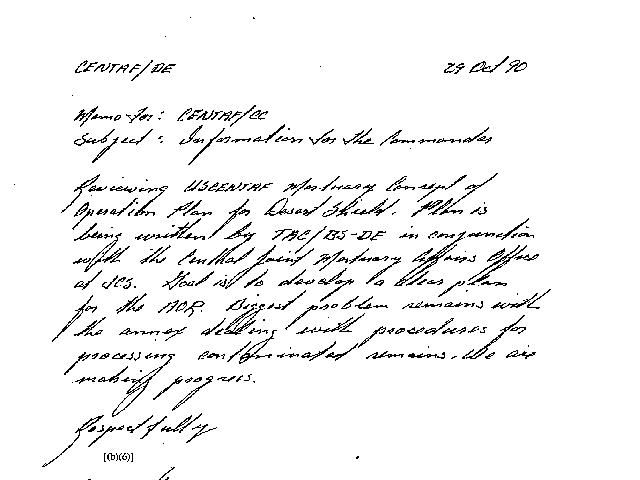 CENTAF/DE 29 Oct 90
Memo for: CENTAF/CC
Subject: Information for the Commander
Reviewing USCENTAF Mortuary Concept of
Operation Plan for Desert Shield. Plan is
being written by TAC/BS-DE in conjunction
with the Central Joint Mortuary Affairs Office
at JCS. Goal is to develop a clear plan
for the AOR. Biggest problem remains with
the annex dealing with procedures for
processing contaminated remains. We are
making progress.
Respectfully
[(b)(6)]